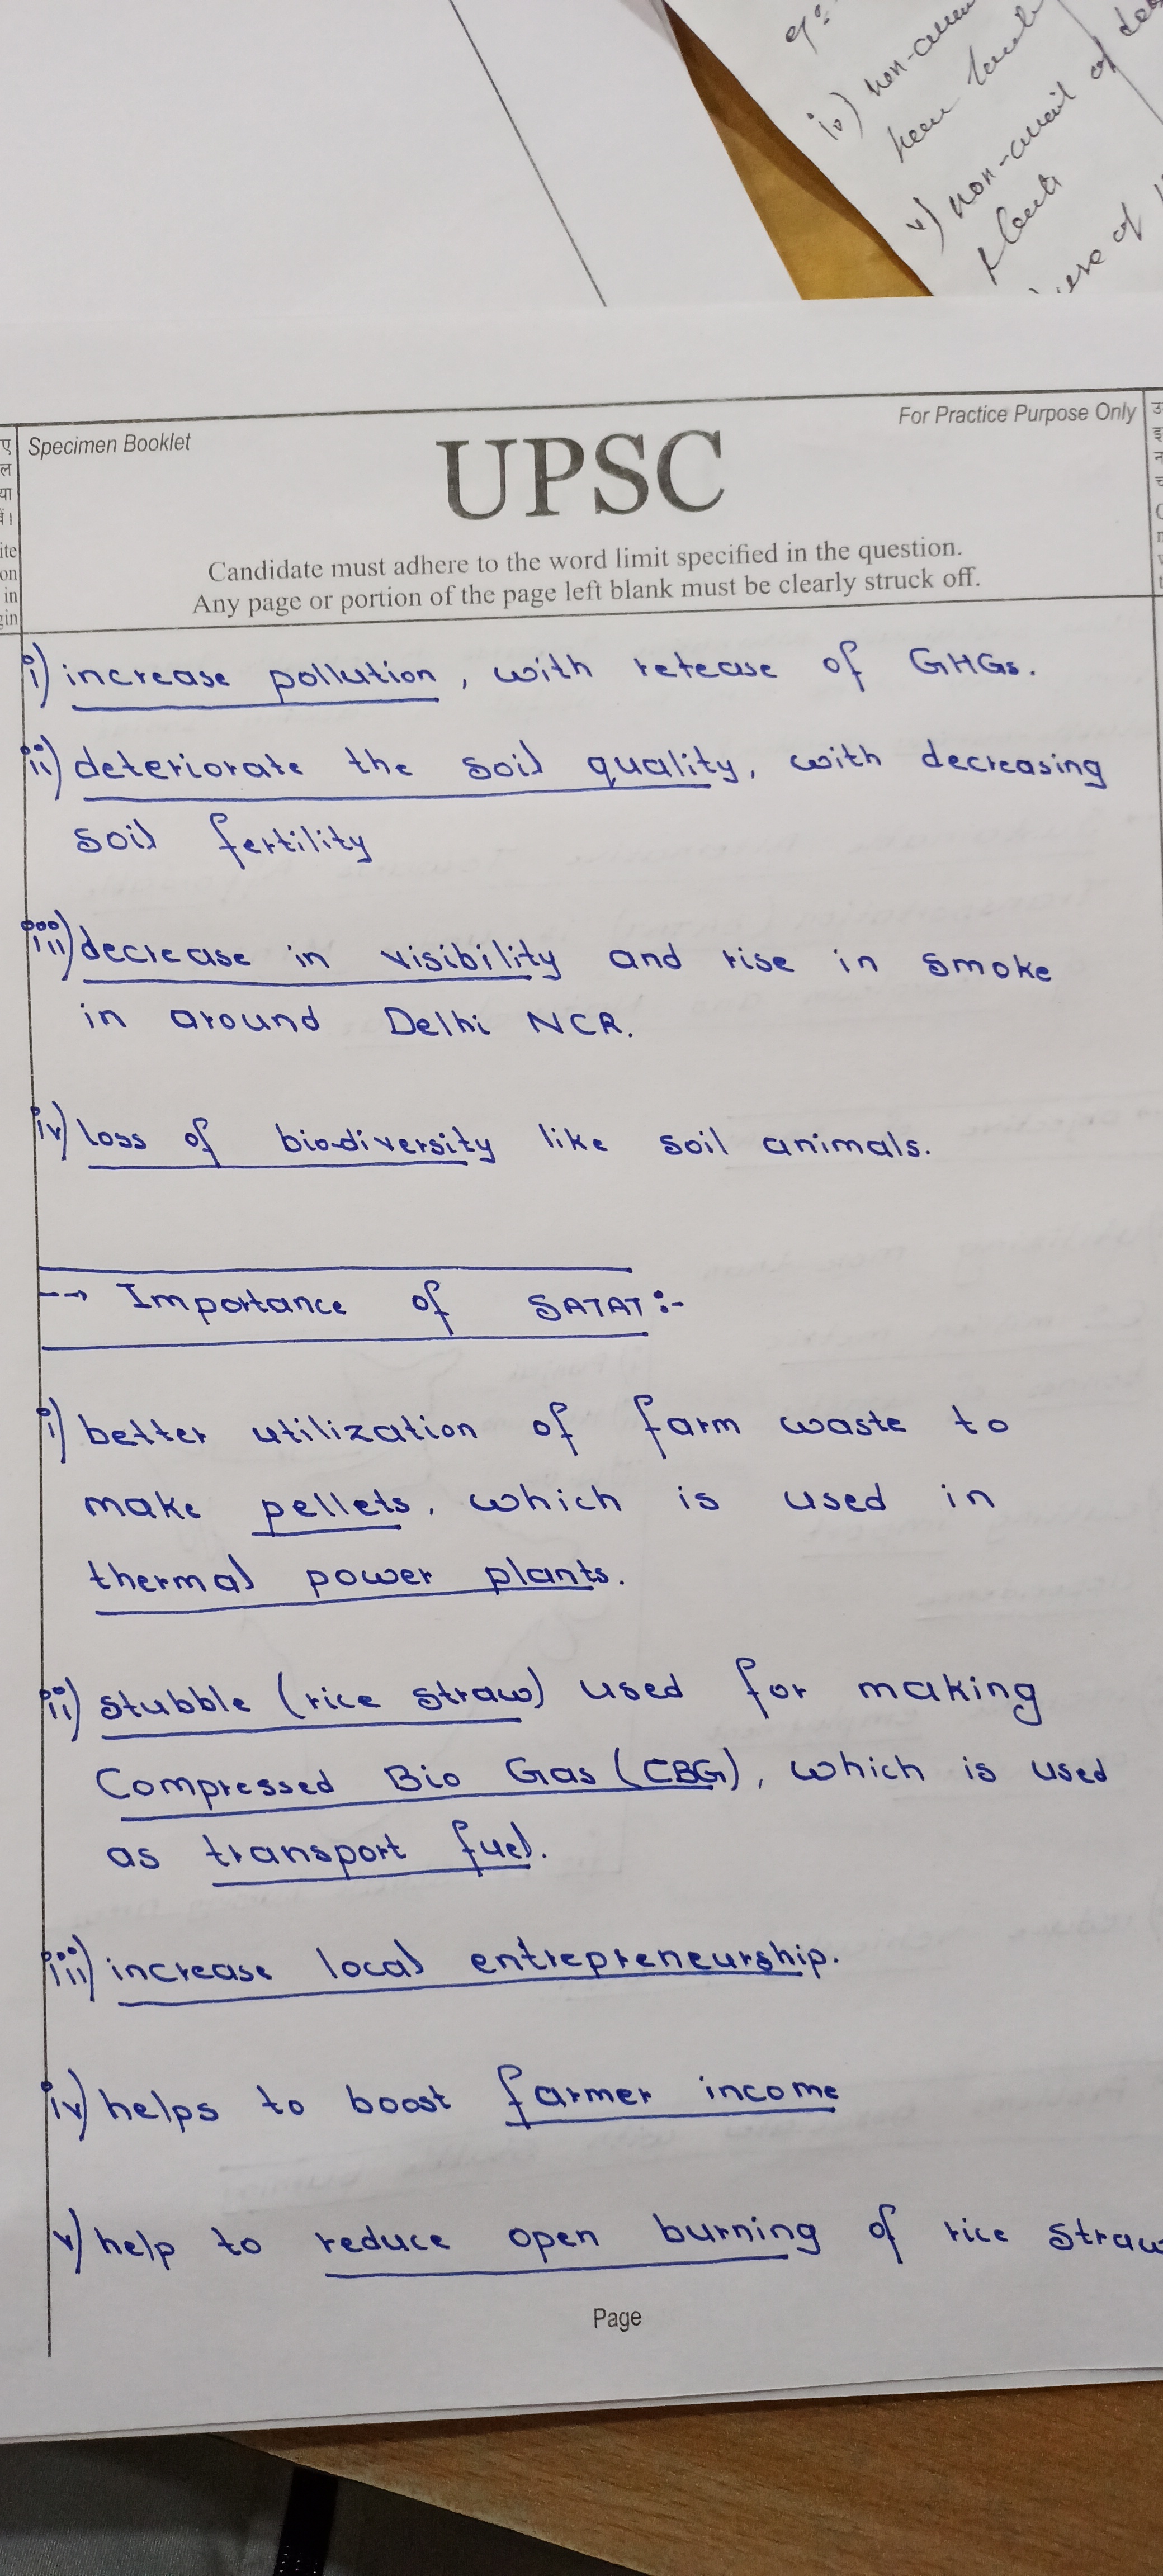 iv) non-
been
v) non-avail of
of
Specimen Booklet
For Practice Purpose Only
UPSC
Candidate must adhere to the word limit specified in the question.
Any page or portion of the page left blank must be clearly struck off.
i) increase pollution, with retease of GHGs.
ii) deteriorate the soil quality, with decreasing
soil fertility
iii) decrease in visibility and rise in smoke
in around Delhi NCR.
iv) loss of bio-diversity like soil animals.
--> Importance of SATAT:-
i) better utilization of farm waste to
make pellets, which is used in
thermal power plants.
ii) stubble (rice straw) used for making
Compressed Bio Gas (CBG), which is used
as transport fuel.
iii) increase local entrepreneurship.
iv) helps to boost farmer income
v) help to reduce open burning of rice straw
Page